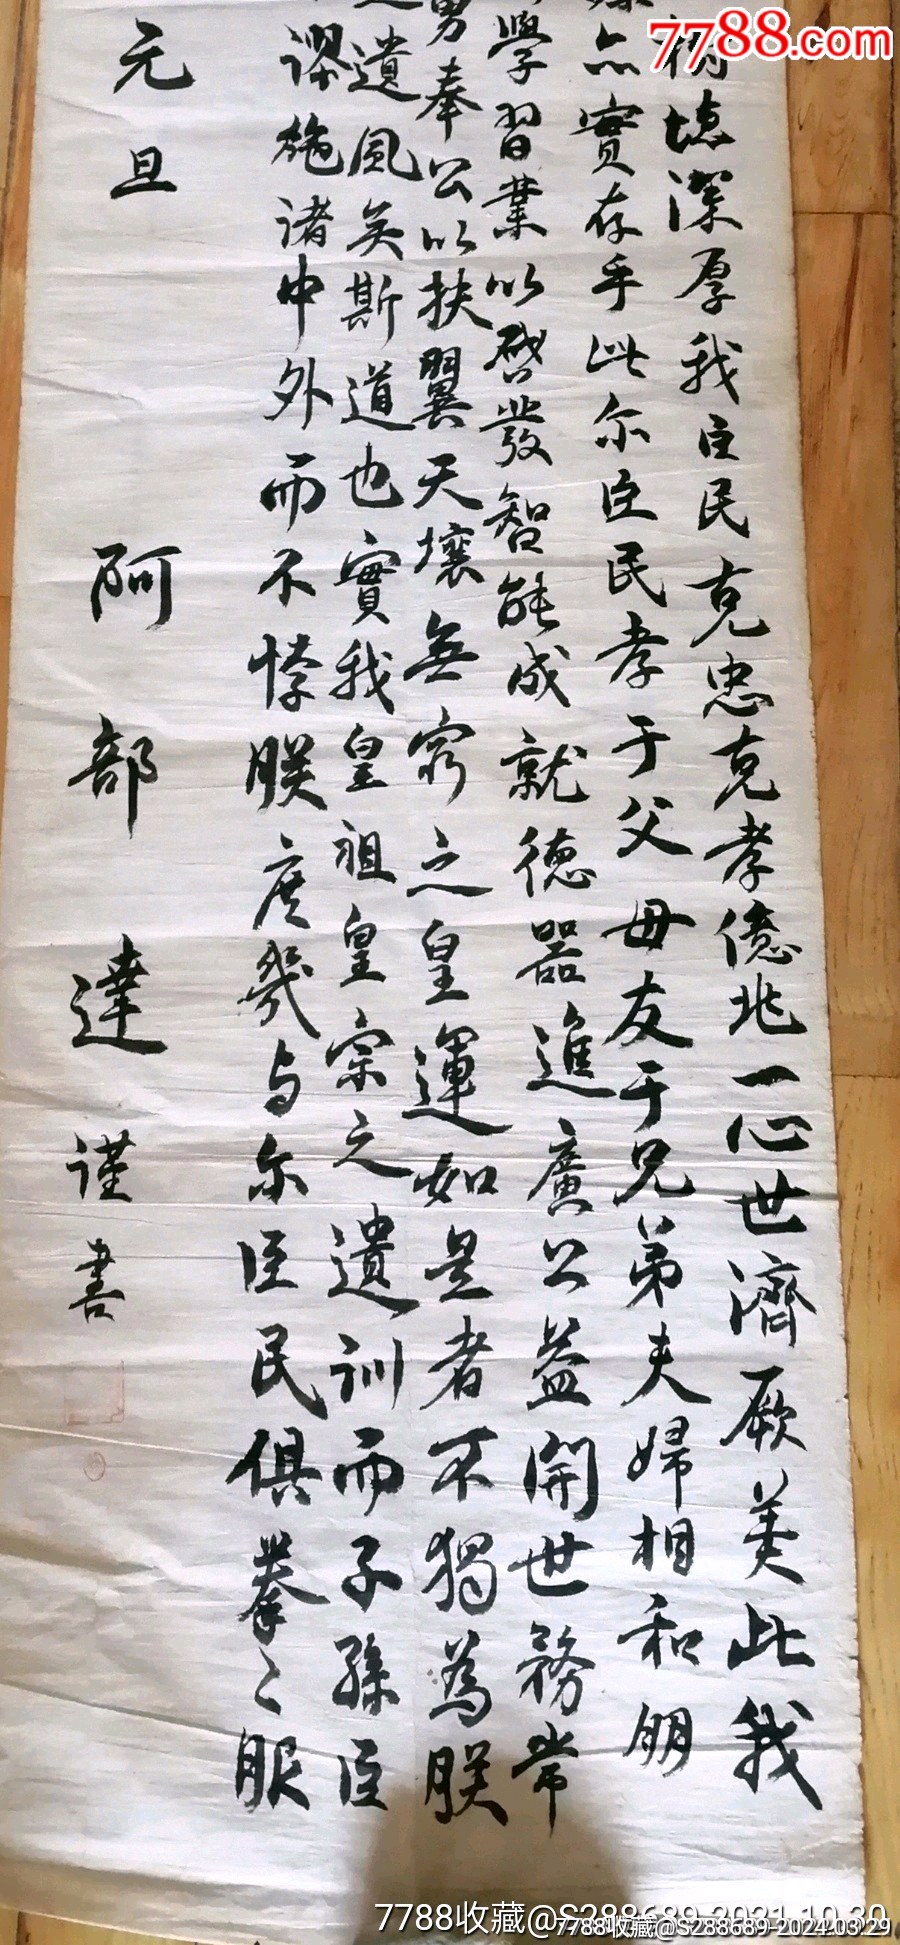 7788.com
樹德深厚我臣民克忠克孝億兆一心世濟厥美此我
亦實存乎此尔臣民孝于父母友于兄弟夫婦相和朋
學習業以啓發智能成就德器進廣公益開世務常
勇奉公以扶翼天壤無窮之皇運如是者不獨為朕
遺風矣斯道也實我皇祖皇宗之遺訓而子孫臣
謬施諸中外而不悖朕庶幾与尔臣民俱拳々服
元旦 阿部達謹書
7788收藏@S288689-2021.10.30
7788收藏@S288689-2024.03.29